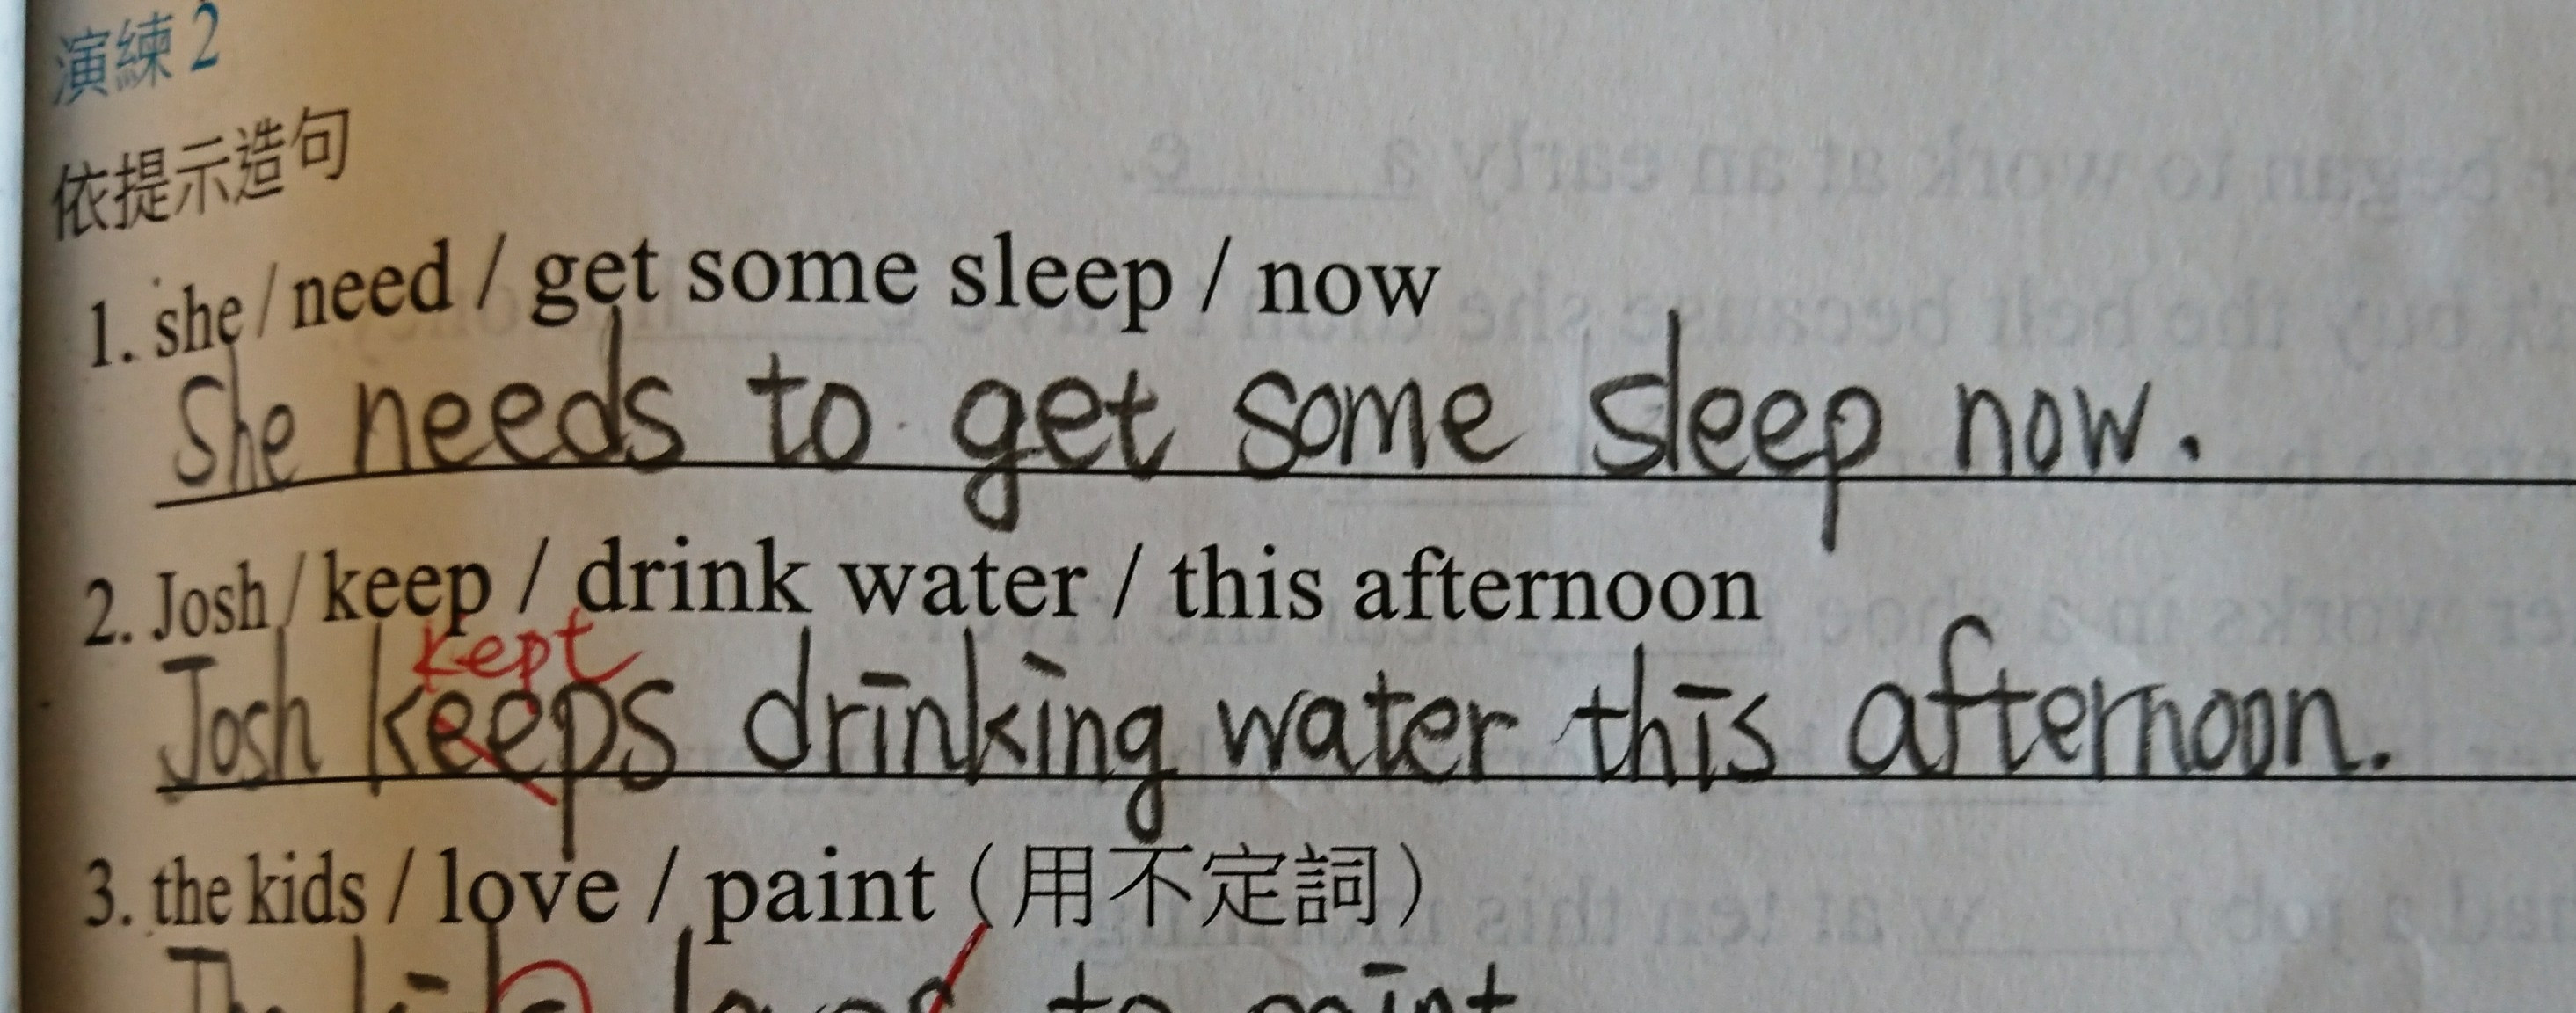 演練 2
依提示造句
1. she / need / get some sleep / now
She needs to get some sleep now.
2. Josh / keep / drink water / this afternoon
kept
Josh keeps drinking water this afternoon.
3. the kids / love / paint (用不定詞)
to paint